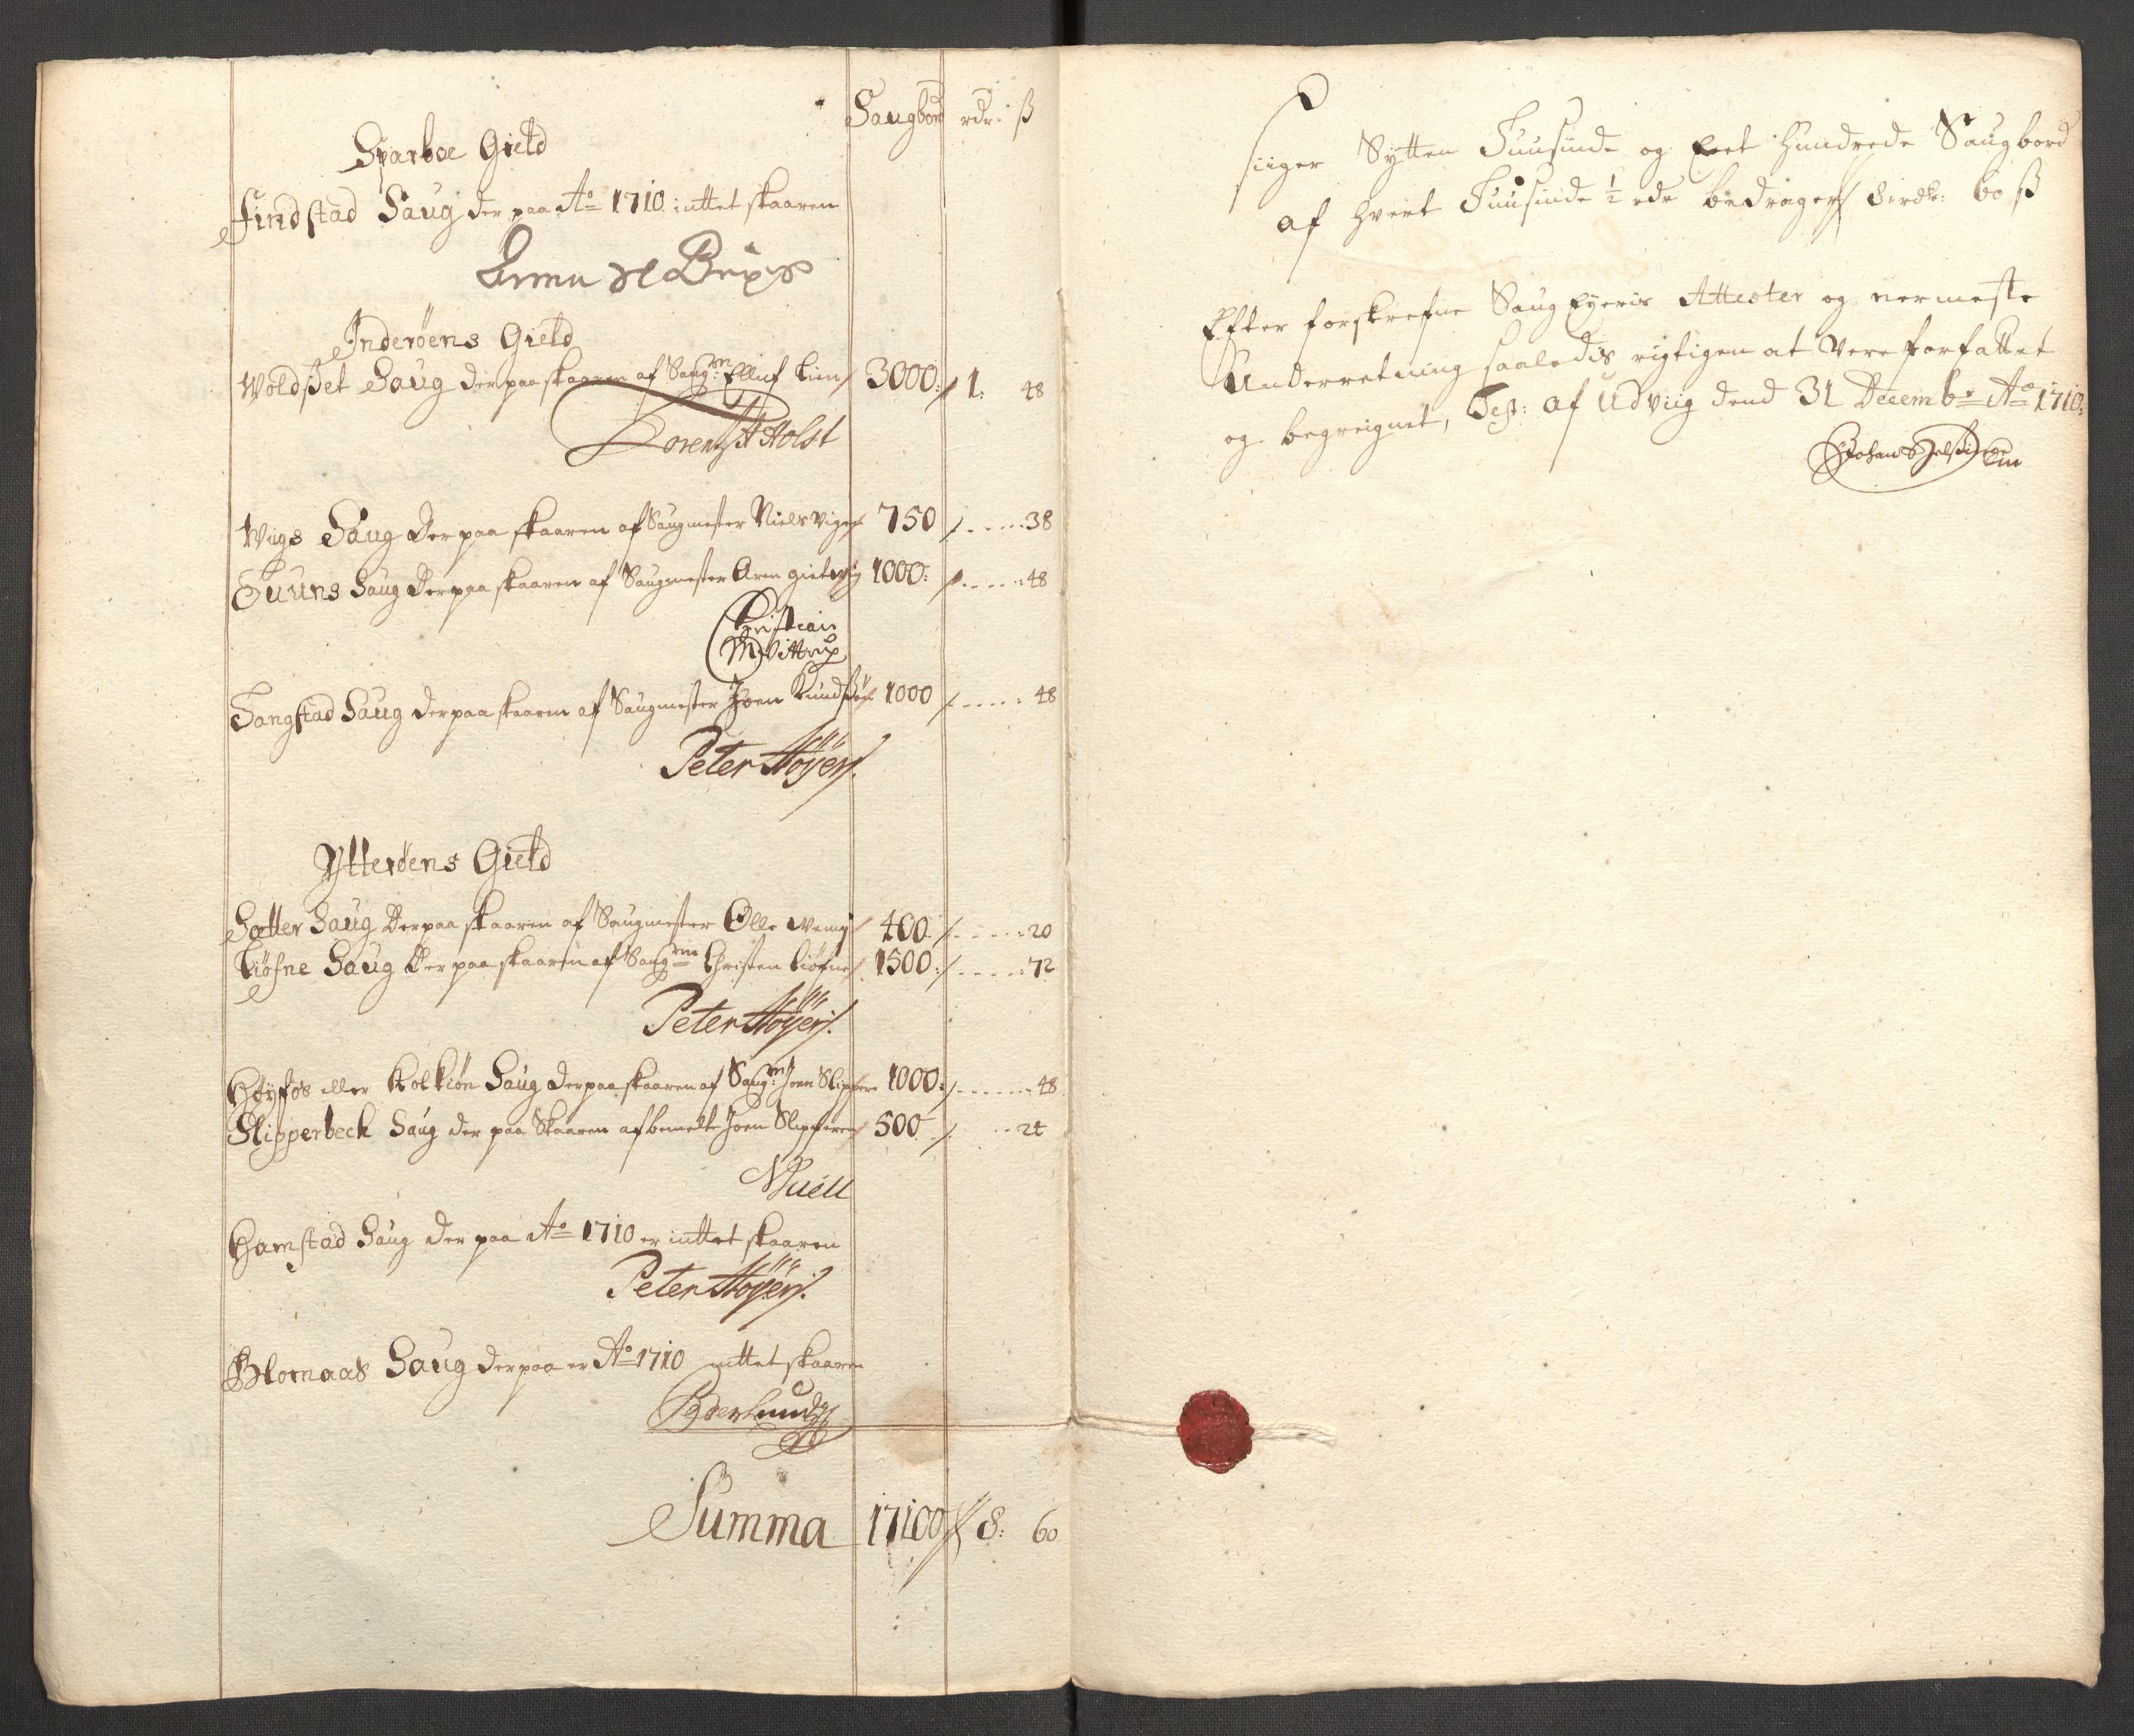 Saugbord rdr: ß
Sparboe Gield
Findstad Saug der paa Ao 1710 inttet skaaren
Inderøens Gield
Woldset Saug der paa skaaren af Saugm: Elluf Lien 3000: 1: 48
Lorentz H Holst
Wiigs Saug der paa skaaren af Saugmester Niels Vigen 750 38
Tuuns Saug der paa skaaren af Saugmester Aren 1000: 48
Christian
M Vittrup
Sangstad Saug der paa skaaren af Saugmester Joen 1000 48
Peter Høyer
Ytterøens Gield
Sætter Saug der paa skaaren af Saugmester Olle 400 20
Kiøfne Saug der paa skaaren af Saugm Christen Kiøfne 1500: 72
Peter Høyer
Høyfos eller Kolkiøn Saug der paa skaaren af Saugm: Joen Slipper 1000: 48
Slipperbeck Saug der paa Skaaren af bemelte Joen Slipperen 500 24
Hamstad Saug der paa Ao 1710 er inttet skaaren
Peter Høyer
Hlomaas Saug der paa er Ao 1710 inttet skaaren
Summa 17100 8: 60
siiger Sytten Tuusinde og Eet Hundrede Saugbord
af hvert Tuusinde ½ rdr bedrager 8 rdr: 60 ß
Efter forskrefne Saug Eyeris Attester og nermeste
Underretning saaledis rigtigen at Vere forfattet
og begreignet, Test: af Udviig dend 31 Decembr Ao 1710: